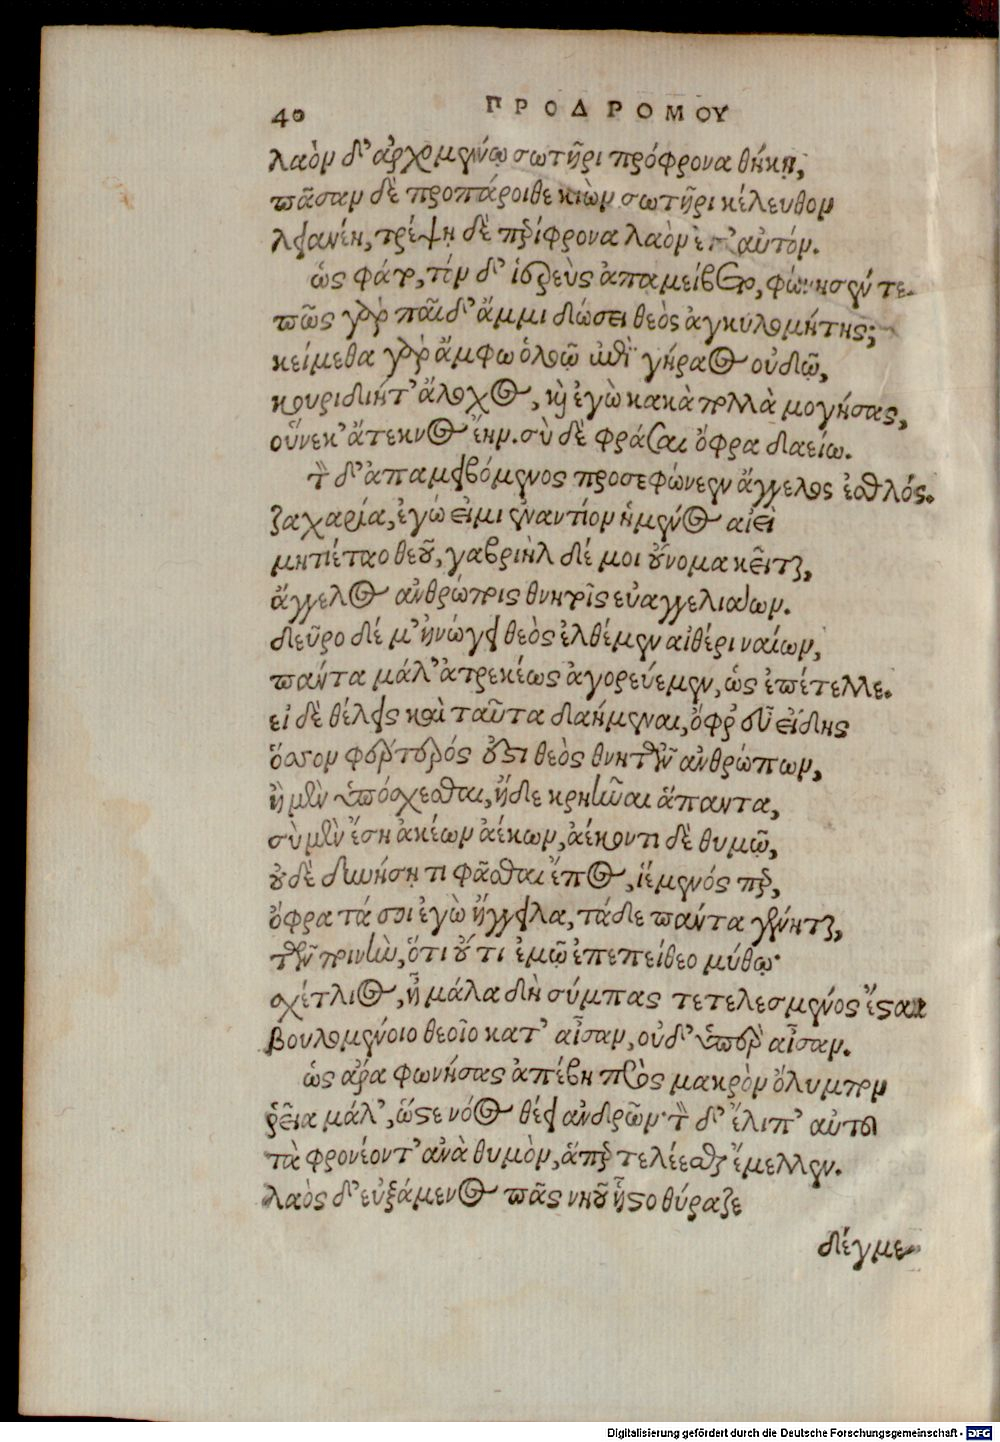 40 ΠΡΟΔΡΟΜΟΥ
λαὸν δ' ἀρχομένῳ σωτῆρι πρόφρονα θήκῃ,
πᾶσαν δὲ προπάροιθε κιὼν σωτῆρι κέλευθον
λειανέῃ, τρέψῃ δὲ περίφρονα λαὸν ἐπ' αὐτόν.
ὡς φάτο, τὸν δ' ἱερεὺς ἀπαμείβετο, φώνησέν τε.
πῶς γὰρ παῖδ' ἄμμι δώσει θεὸς ἀγκυλομήτης;
κείμεθα γὰρ ἄμφω ὀλοῷ ἐπὶ γήραος οὐδῷ,
κουριδίη τ' ἄλοχος, καὶ ἐγὼ κακὰ πολλὰ μογήσας,
οὕνεκ' ἄτεκνος ἔην. σὺ δὲ φράσαι ὄφρα δαείω.
τὸν δ' ἀπαμειβόμενος προσεφώνεεν ἄγγελος ἐσθλός.
ζαχαρία, ἐγώ εἰμι ἐναντίον ἥμενος αἰεὶ
μητιέταο θεοῦ, γαβριὴλ δέ μοι οὔνομα κεῖται,
ἄγγελος ἀνθρώποις θνητοῖς εὐαγγελιάζων.
δεῦρο δέ μ' ἠνώγει θεὸς ἐλθέμεν αἰθέρι ναίων,
πάντα μάλ' ἀτρεκέως ἀγορεύεμεν, ὡς ἐπέτελλε.
εἰ δὲ θέλεις καὶ ταῦτα δαήμεναι, ὄφρ' εὖ εἰδῇς
ὅσσον φέρτερός ἐστι θεὸς θνητῶν ἀνθρώπων,
ἢ μὲν ὑπόσχεσθαι, ἠδὲ κρηῆναι ἅπαντα,
σὺ μὲν ἔσῃ ἀκέων ἀέκων, ἀέκοντι δὲ θυμῷ,
οὐδὲ δυνήσῃ τι φᾶσθαι ἔπος, ἱέμενός περ,
ὄφρα τά σοι ἐγὼ ἤγγειλα, τάδε πάντα γένηται,
τῶν ποινὴν, ὅτι οὔ τι ἐμῷ ἐπεπείθεο μύθῳ·
σχέτλιος, ἦ μάλα δὴ σύμπας τετελεσμένος ἔσται
βουλομένοιο θεοῖο κατ' αἶσαν, οὐδ' ὑπὲρ αἶσαν.
ὡς ἄρα φωνήσας ἀπέβη πρὸς μακρὸν ὄλυμπον
ῥεῖα μάλ', ὥστε νόος θέει ἀνδρῶν· τὸν δ' ἔλιπ' αὐτοῦ
τὰ φρονέοντ' ἀνὰ θυμὸν, ἅπερ τελέεσθαι ἔμελλεν.
λαὸς δ' εὐξάμενος πᾶς νηοῦ ᾗστο θύραζε
δέγμε-
Digitalisierung gefördert durch die Deutsche Forschungsgemeinschaft - DFG